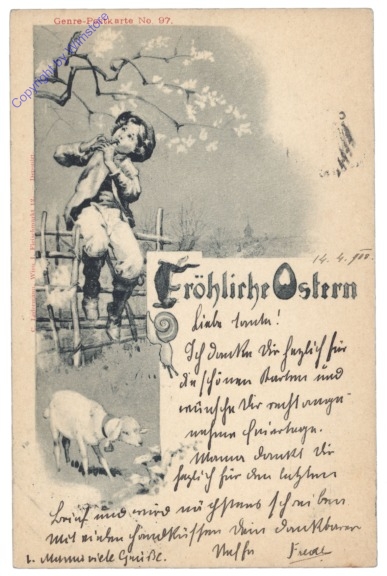 Genre-Postkarte No. 97.
Copyright by Wihstore
14. 4. 900.
Fröhliche Ostern
Liebe Tante!
Ich danke Dir herzlich für
die schönen Karten und
wünsche Dir recht ange-
nehme Feiertage.
Mama dankt Dir
herzlich für den letzten
Brief und wird nächstens schreiben
Mit vielen Handküssen Dein dankbarer
Neffe
v. Mama viele Grüße.